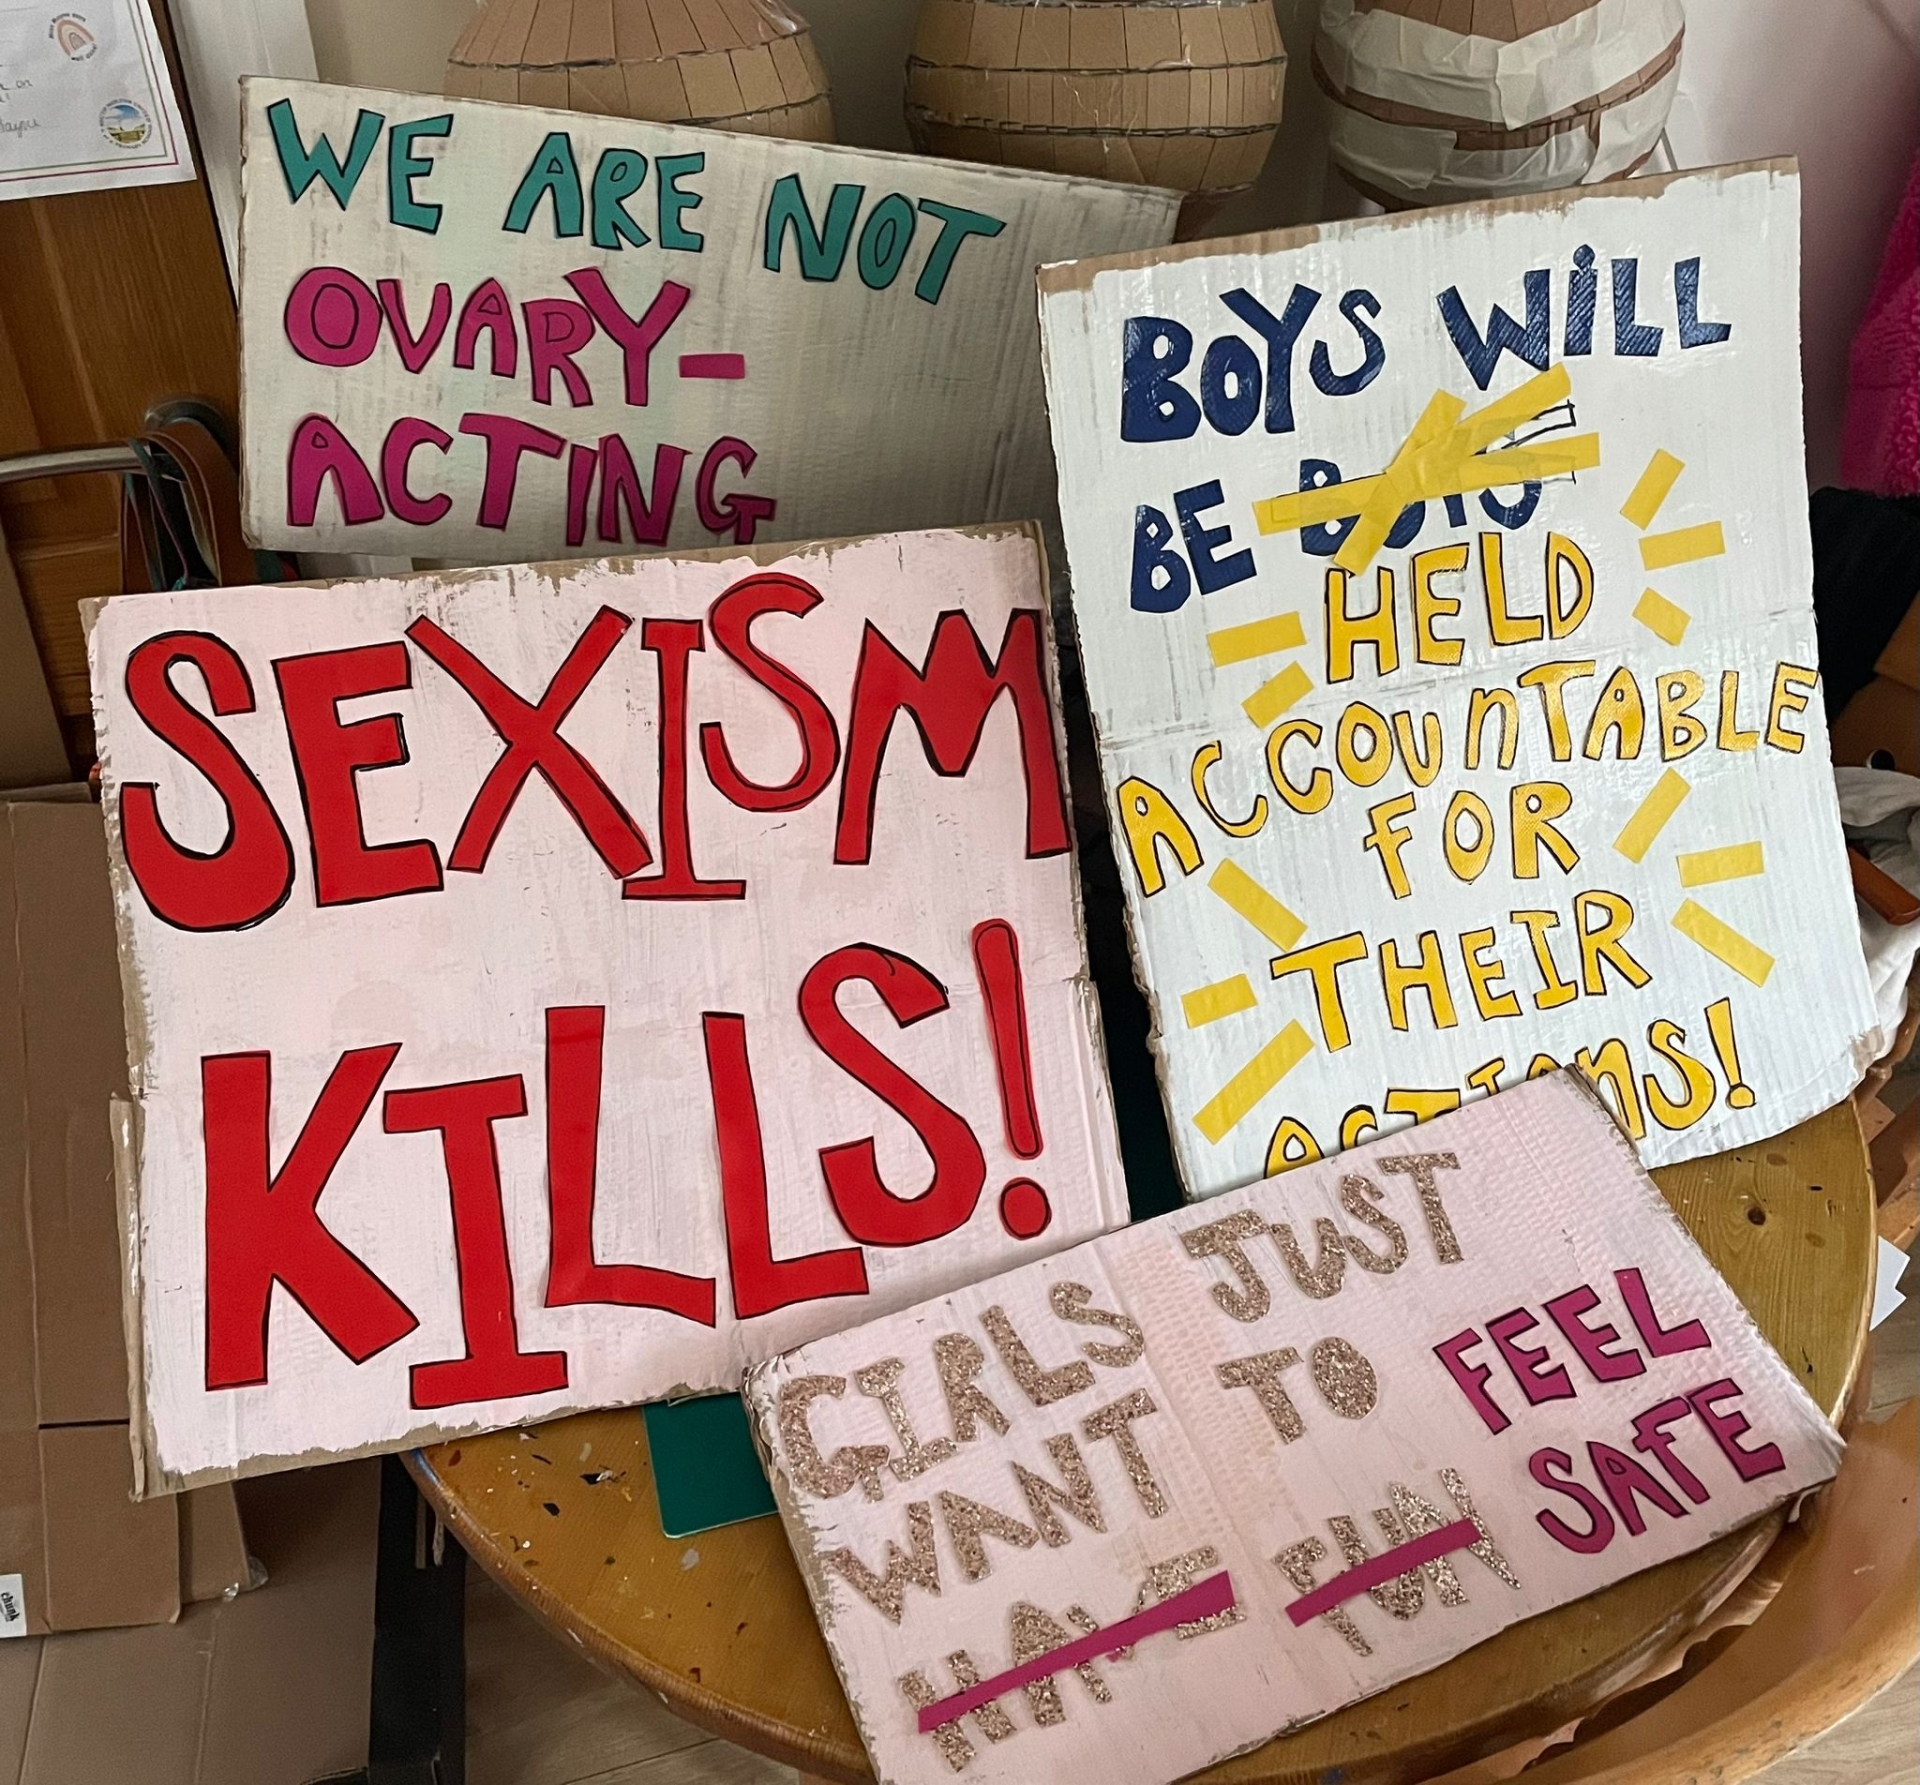 WE ARE NOT
OVARY-
ACTING
BOYS WiLL
BE BOYS
HELD
ACCOUnTABLE
FOR
THEIR
ACTIOnS!
SEXISM
KILLS!
GIRLS JUST
WANT TO FEEL
HAVE FUN SAFE
chunk